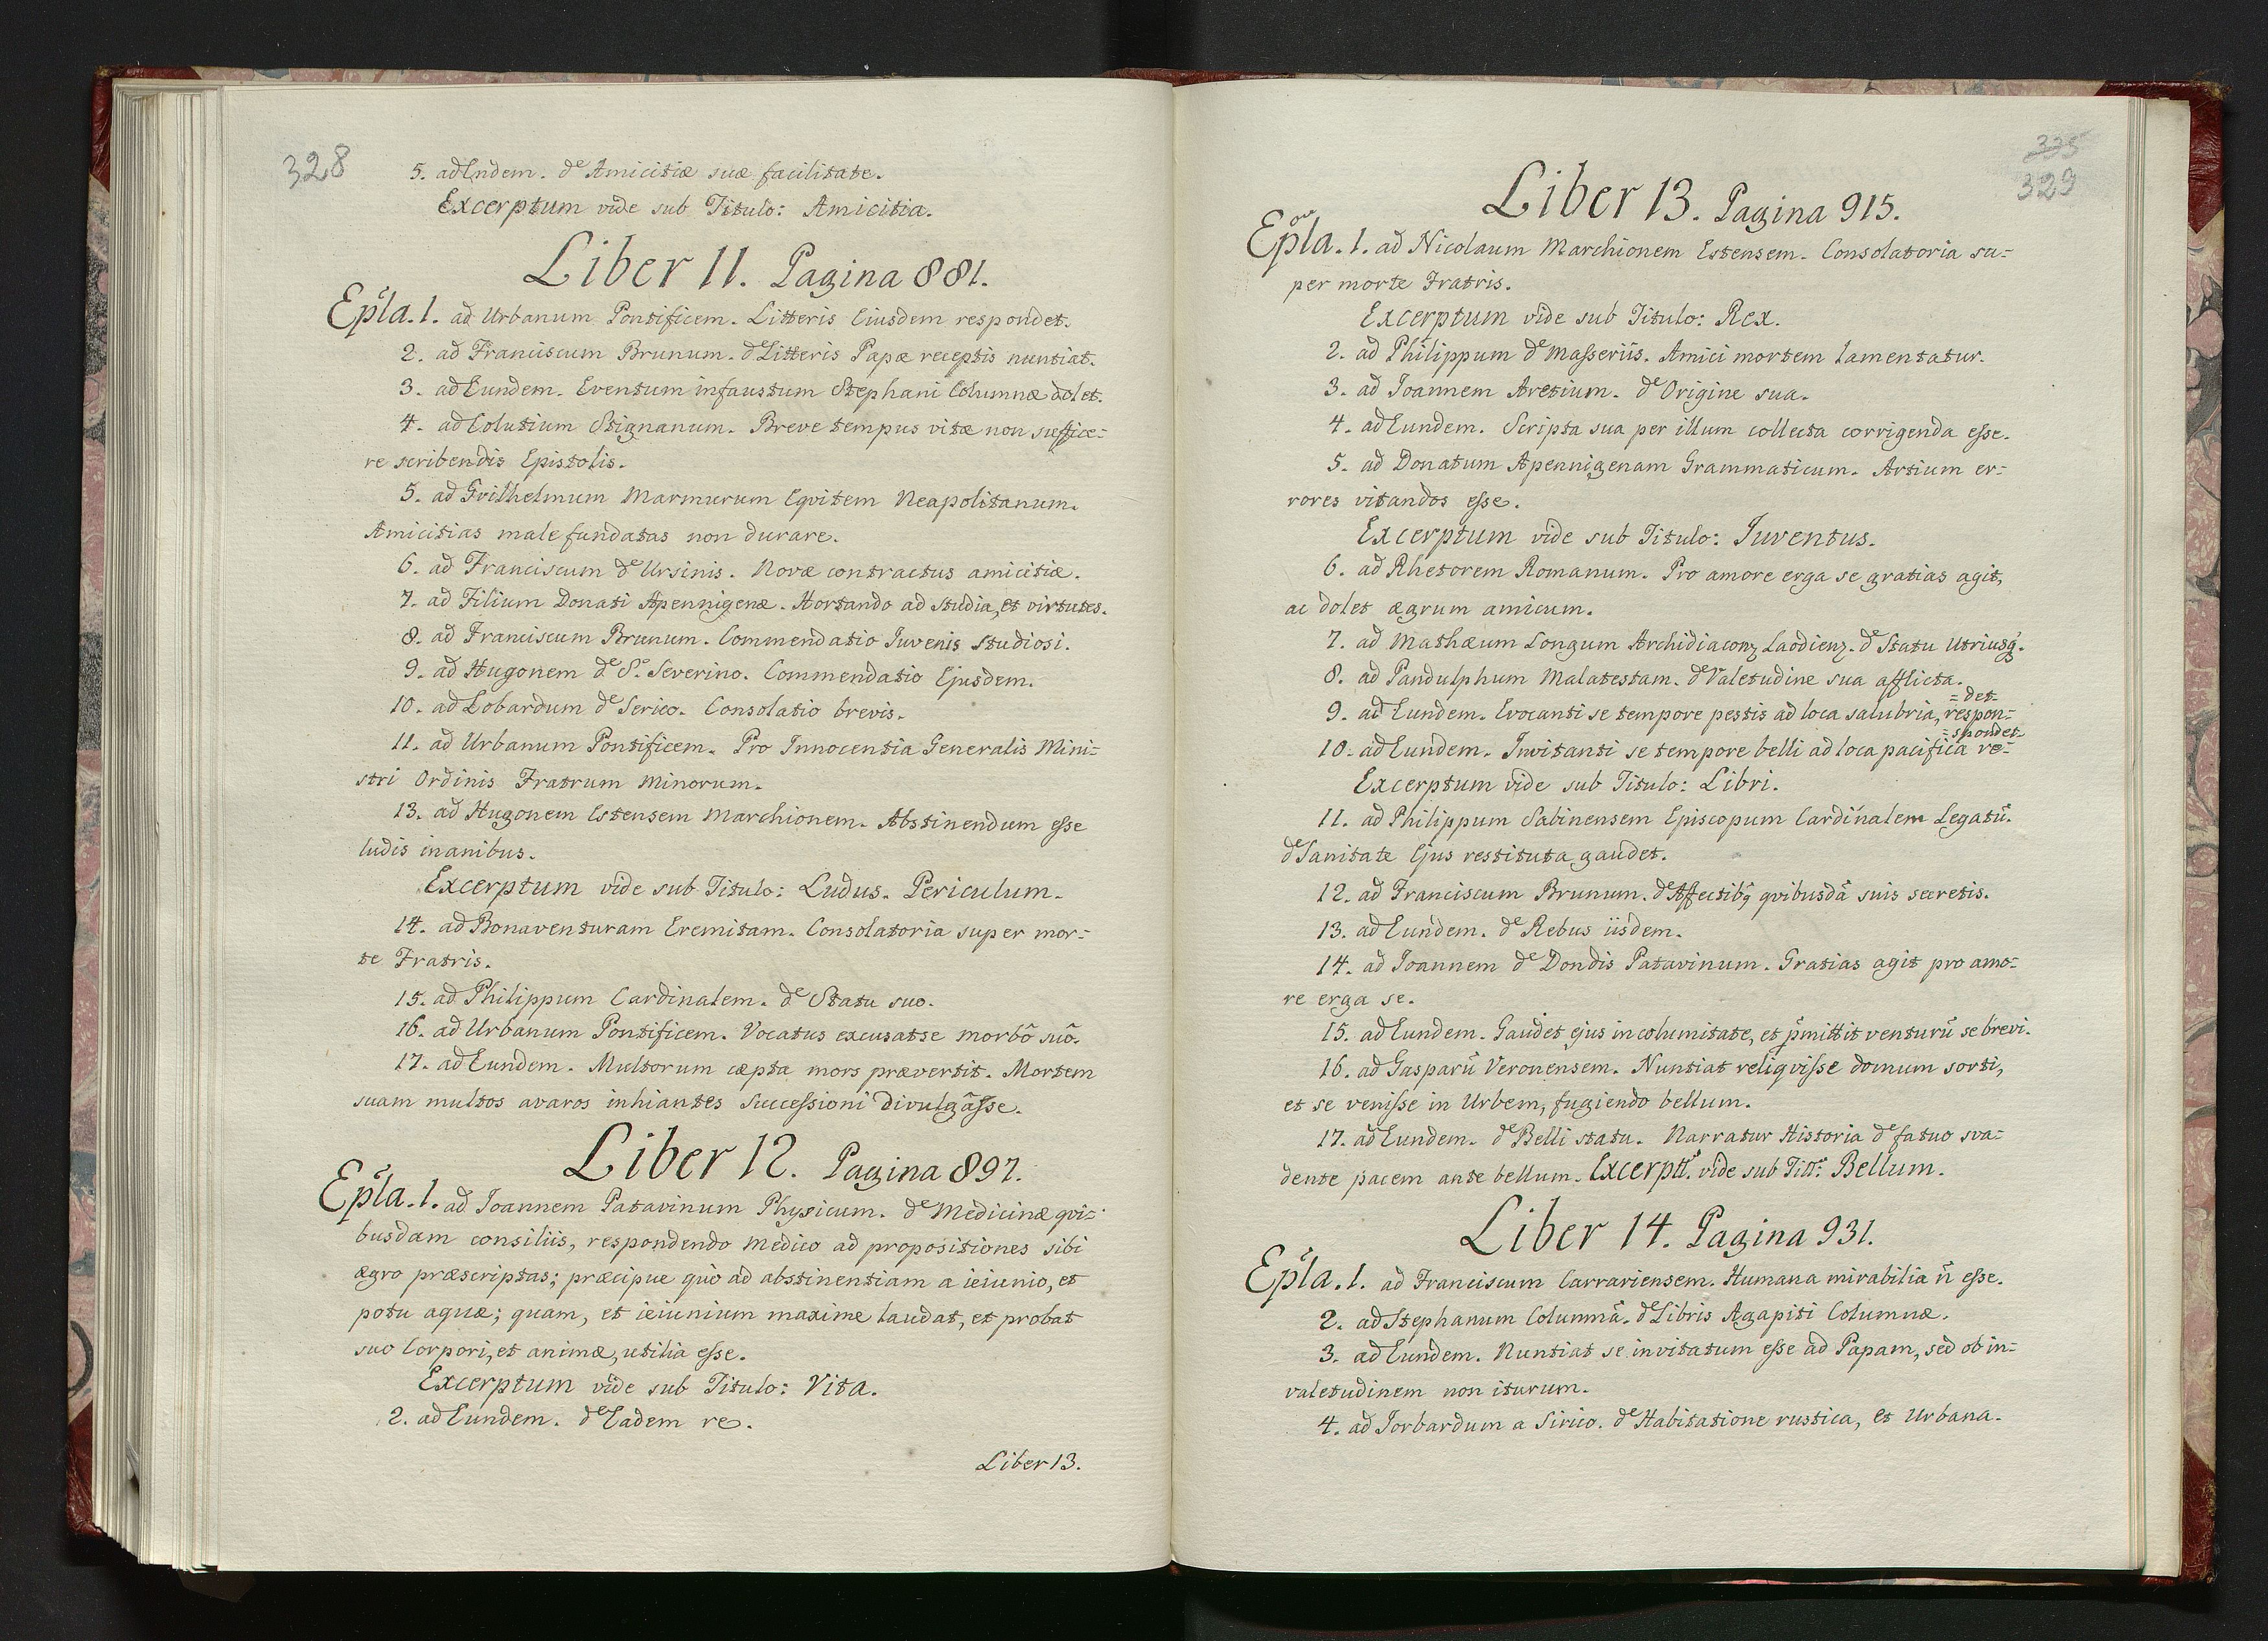 328
5. ad Endem. de Amicitiæ suæ facilitate.
Excerptum vide sub Titulo: Amicitia.
Liber 11. Pagina 881.
Epla. 1. ad Urbanum Pontificem. Litteris Eiusdem respondet.
2. ad Franciscum Brunum. de Litteris Papæ receptis nuntiat.
3. ad Eundem. Eventum infaustum Stephani Columnæ dolet.
4. ad Colutium Stignanum. Breve tempus vitæ non suffice=
re scribendis Epistolis.
5. ad Gvilhelmum Marmurum Eqvitem Neapolitanum.
Amicitias male fundatas non durare.
6. ad Franciscum de Ursinis. Novæ contractus amicitiæ.
7. ad Filium Donati Apennigenæ. Hortando ad studia, et virtutes.
8. ad Franciscum Brunum. Commendatio Iuvenis Studiosi.
9. ad Hugonem de S. Severino. Commendatio Ejusdem.
10. ad Lobardum de Serico. Consolatio brevis.
11. ad Urbanum Pontificem. Pro Innocentia Generalis Mini=
stri Ordinis Fratrum Minorum.
13. ad Hugonem Estensem Marchionem. Abstinendum esse
ludis inanibus.
Excerptum vide sub Titulo: Ludus. Periculum.
14. ad Bonaventuram Eremitam. Consolatoria super mor=
te Fratris.
15. ad Philippum Cardinalem. de Statu suo.
16. ad Urbanum Pontificem. Vocatus excusat se morbô suô.
17. ad Eundem. Multorum cæpta mors prævertit. Mortem
suam multos avaros inhiantes Successioni divulgâsse.
Liber 12. Pagina 897.
Epla. 1. ad Ioannem Patavinum Physicum. de Medicinæ qvi=
busdam consiliis, respondendo Medico ad propositiones sibi
ægro præscriptas; præcipue quò ad abstinentiam a ieiunio, et
potu aquæ; quam, et ieiunium maxime laudat, et probat
suo Corpori, et animæ, utilia esse.
Excerptum vide sub Titulo: Vita.
2. ad Eundem. de Eadem re.
Liber 13.
335
329
Liber 13. Pagina 915.
Epla. 1. ad Nicolaum Marchionem Estensem. Consolatoria su=
per morte Fratris.
Excerptum vide sub Titulo: Rex.
2. ad Philippum de Masseriis. Amici mortem lamentatur.
3. ad Ioannem Aretium. de Origine sua.
4. ad Eundem. Scripta sua per illum collecta corrigenda esse.
5. ad Donatum Apennigenam Grammaticum. Artium er=
rores vitandos esse.
Excerptum vide sub Titulo: Iuventus.
6. ad Rhetorem Romanum. Pro amore erga se gratias agit,
ac dolet ægrum amicum.
7. ad Mathæum Longum Archidiacon. Laodienz. de Statu Utriusq.
8. ad Pandulphum Malatestam. de Valetudine sua afflicta.
9. ad Eundem. Evocanti se tempore pestis ad loca salubria, respon=
=det.
10. ad Eundem. Invitanti se tempore belli ad loca pacifica re=
=spondet.
Excerptum vide sub Titulo: Libri.
11. ad Philippum Sabinensem Episcopum Cardinalem Legatū.
de Sanitate Ejus restituta gaudet.
12. ad Franciscum Brunum. de Affectibq qvibusdā suis secretis.
13. ad Eundem. de Rebus iisdem.
14. ad Ioannem de Dondis Patavinum. Gratias agit pro amo=
re erga se.
15. ad Eundem. Gaudet ejus incolumitate, et pmittit venturū se brevi.
16. ad Gasparū Veronensem. Nuntiat reliqvisse domum sorti,
et se venisse in Urbem, fugiendo bellum.
17. ad Eundem. de Belli statu. Narratur Historia de fatuo sva=
dente pacem ante bellum. Excerptt. vide sub Titt: Bellum.
Liber 14. Pagina 931.
Epla. 1. ad Franciscum Carrariensem. Humana mirabilia n̄ esse.
2. ad Stephanum Columnā. de Libris Agapiti Columnæ.
3. ad Eundem. Nuntiat se invitatum esse ad Papam, sed ob in=
valetudinem non iturum.
4. ad Iorbardum a Sirico. de Habitatione rustica, et Urbana.